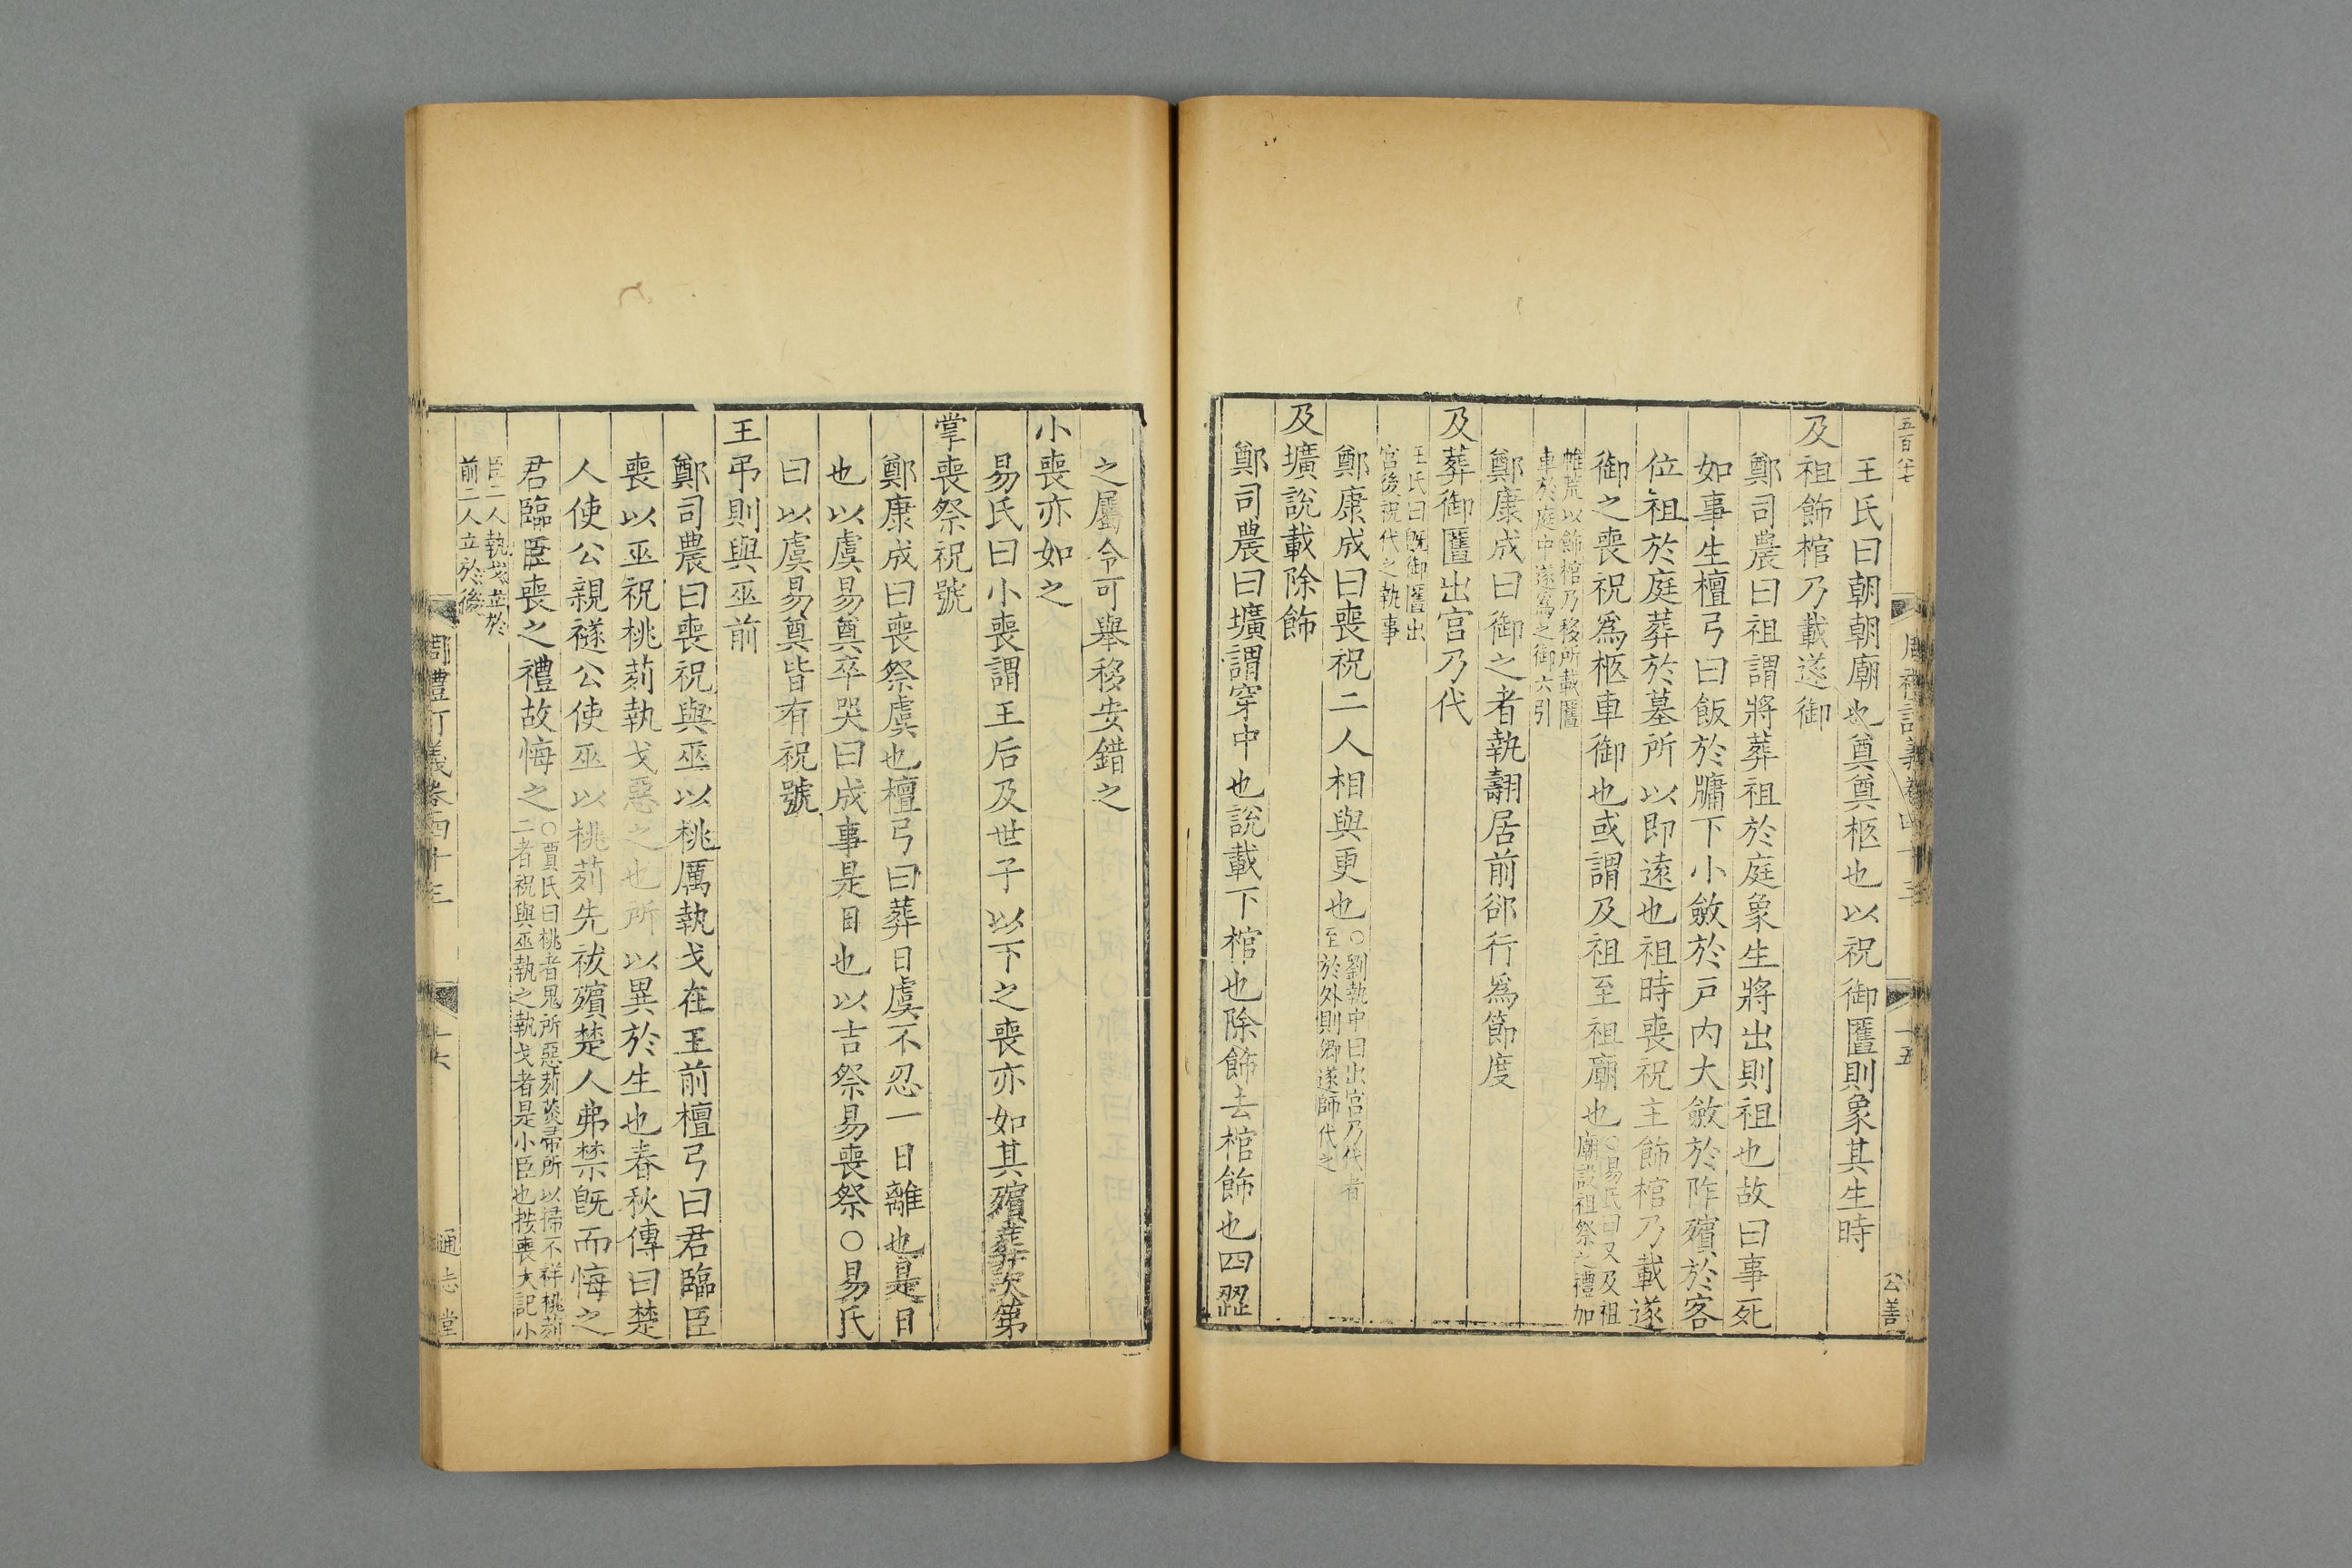 五百八十七
周禮訂義卷四十三
十五
公善
王氏曰朝朝廟也奠奠柩也以祝御匶則象其生時
及祖飾棺乃載遂御
鄭司農曰祖謂將葬祖於庭象生將出則祖也故曰事死
如事生檀弓曰飯於牖下小斂於戸内大斂於阼殯於客
位祖於庭葬於墓所以即遠也祖時喪祝主飾棺乃載遂
御之喪祝爲柩車御也或謂及祖至祖廟也○易氏曰又及祖
廟設祖祭之禮加
帷荒以飾棺乃移所載匶
車於庭中遂爲之御六引
鄭康成曰御之者執翿居前郤行爲節度
及葬御匶出宫乃代
王氏曰旣御匶出
宫後祝代之執事
鄭康成曰喪祝二人相與更也○劉執中曰出宫乃代者
至於外則鄉遂師代之
及壙說載除飾
鄭司農曰壙謂穿中也說載下棺也除飾去棺飾也四翣
之屬令可舉移安錯之
小喪亦如之
易氏曰小喪謂王后及世子以下之喪亦如其殯葬次第
掌喪祭祝號
鄭康成曰喪祭虞也檀弓曰葬日虞不忍一日離也是日
也以虞易奠卒哭曰成事是日也以吉祭易喪祭○易氏
曰以虞易奠皆有祝號
王弔則與巫前
鄭司農曰喪祝與巫以桃厲執戈在王前檀弓曰君臨臣
喪以巫祝桃茢執戈惡之也所以異於生也春秋傳曰楚
人使公親襚公使巫以桃茢先祓殯楚人弗禁旣而悔之
君臨臣喪之禮故悔之○賈氏曰桃者鬼所惡茢萑帚所以掃不祥桃茢
二者祝與巫執之執戈者是小臣也按喪大記小
臣二人執戈立於
前二人立於後
周禮訂義卷四十三
十六
通志堂